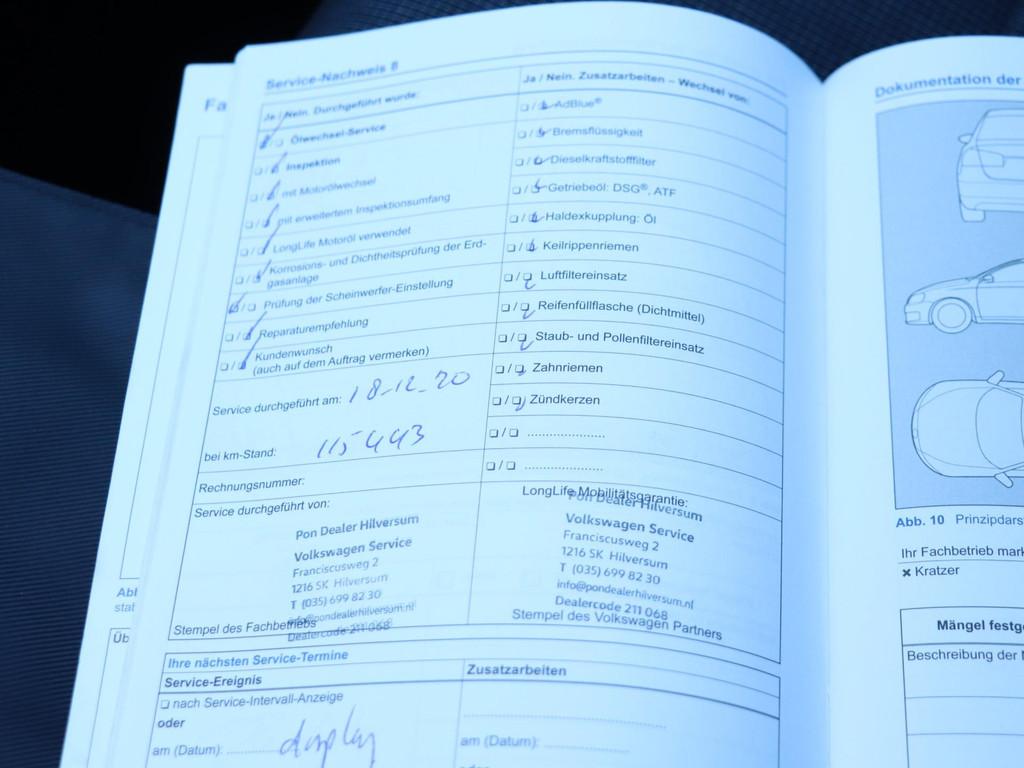 Fa
Service-Nachweis 8
Ja / Nein. Durchgeführt wurde:
❑ Ölwechsel-Service
❑ / Inspektion
❑ / mit Motorölwechsel
❑ / mit erweitertem Inspektionsumfang
❑ / LongLife Motoröl verwendet
❑ / Korrosions- und Dichtheitsprüfung der Erd-
gasanlage
/ ❑ Prüfung der Scheinwerfer-Einstellung
❑ / Reparaturempfehlung
❑ / Kundenwunsch
(auch auf dem Auftrag vermerken)
Service durchgeführt am: 18-12-20
bei km-Stand: 115443
Rechnungsnummer:
Service durchgeführt von:
Pon Dealer Hilversum
Volkswagen Service
Franciscusweg 2
1216 SK Hilversum
T (035) 699 82 30
info@pondealerhilversum.nl
Stempel des Fachbetriebs
Dealercode 211 068
Ja / Nein. Zusatzarbeiten – Wechsel von:
❑ / AdBlue®
❑ / Bremsflüssigkeit
❑ / Dieselkraftstofffilter
❑ / Getriebeöl: DSG®, ATF
❑ / Haldexkupplung: Öl
❑ / Keilrippenriemen
❑ / ❑ Luftfiltereinsatz
❑ / ❑ Reifenfüllflasche (Dichtmittel)
❑ / ❑ Staub- und Pollenfiltereinsatz
❑ / ❑ Zahnriemen
❑ / ❑ Zündkerzen
❑ / ❑ .....................
❑ / ❑ .....................
LongLife Mobilitätsgarantie:
Pon Dealer Hilversum
Volkswagen Service
Franciscusweg 2
1216 SK Hilversum
T (035) 699 82 30
info@pondealerhilversum.nl
Dealercode 211 068
Stempel des Volkswagen Partners
Ihre nächsten Service-Termine
Service-Ereignis
❑ nach Service-Intervall-Anzeige
oder
am (Datum): display
Zusatzarbeiten
am (Datum):
Abl
stat
Üb
Dokumentation der
Abb. 10 Prinzipdars
Ihr Fachbetrieb mark
× Kratzer
Mängel festge
Beschreibung der